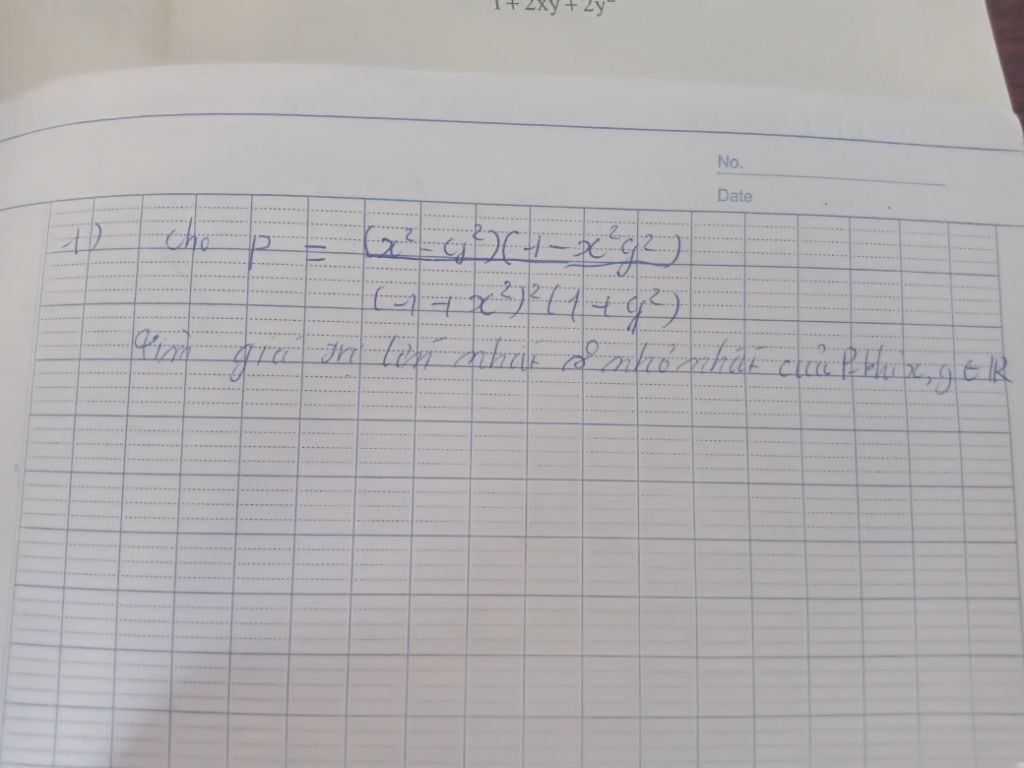 1 + 2xy + 2y²
No.
Date
1) cho P = (x² - y²)(1 - x²y²)
(1 + x²)²(1 + y²)
Tìm giá trị lớn nhất & nhỏ nhất của P khi x, y ∈ R